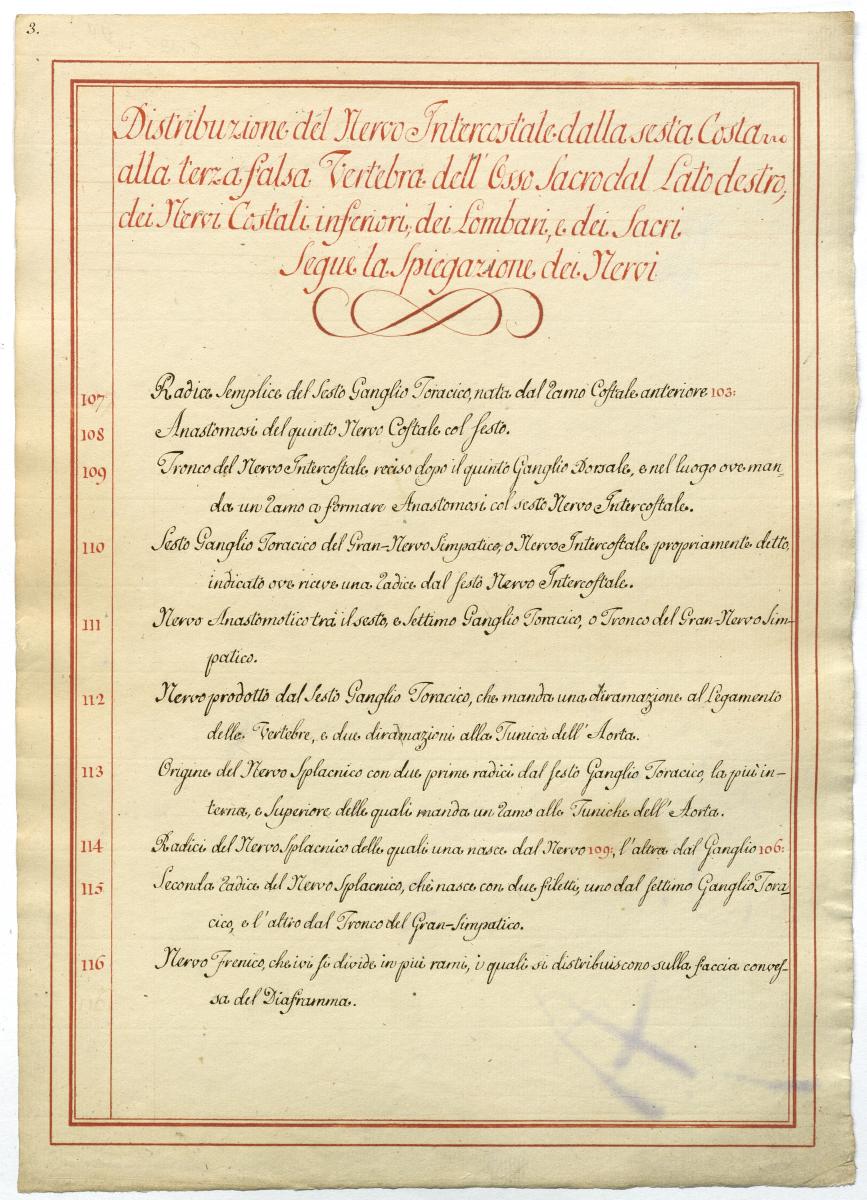 3.
Distribuzione del Nervo Intercostale dalla sesta Costa
alla terza falsa Vertebra dell' Osso Sacro dal Lato destro,
dei Nervi Costali inferiori, dei Lombari, e dei Sacri
Segue la Spiegazione dei Nervi
107 Radice Semplice del Sesto Ganglio Toracico, nata dal Ramo Costale anteriore 103:
108 Anastomosi del quinto Nervo Costale col sesto.
109 Tronco del Nervo Intercostale reciso dopo il quinto Ganglio Dorsale, e nel luogo ove man-
da un Ramo a formare Anastomosi col sesto Nervo Intercostale.
110 Sesto Ganglio Toracico del Gran-Nervo Simpatico, o Nervo Intercostale propriamente detto,
indicato ove riceve una Radice dal sesto Nervo Intercostale.
111 Nervo Anastomotico trà il sesto, e Settimo Ganglio Toracico, o Tronco del Gran-Nervo Sim-
patico.
112 Nervo prodotto dal Sesto Ganglio Toracico, che manda una diramazione al Legamento
delle Vertebre, e due diramazioni alla Tunica dell' Aorta.
113 Origine del Nervo Splacnico con due prime radici dal sesto Ganglio Toracico, la più in-
terna, e Superiore delle quali manda un Ramo alle Tuniche dell' Aorta.
114 Radici del Nervo Splacnico delle quali una nasce dal Nervo 109:, l'altra dal Ganglio 106:
115 Seconda Radice del Nervo Splacnico, che nasce con due filetti, uno dal settimo Ganglio Tora-
cico, e l'altro dal Tronco del Gran-Simpatico.
116 Nervo Frenico, che ivi si divide in più rami, i quali si distribuiscono sulla faccia conves-
sa del Diaframma.